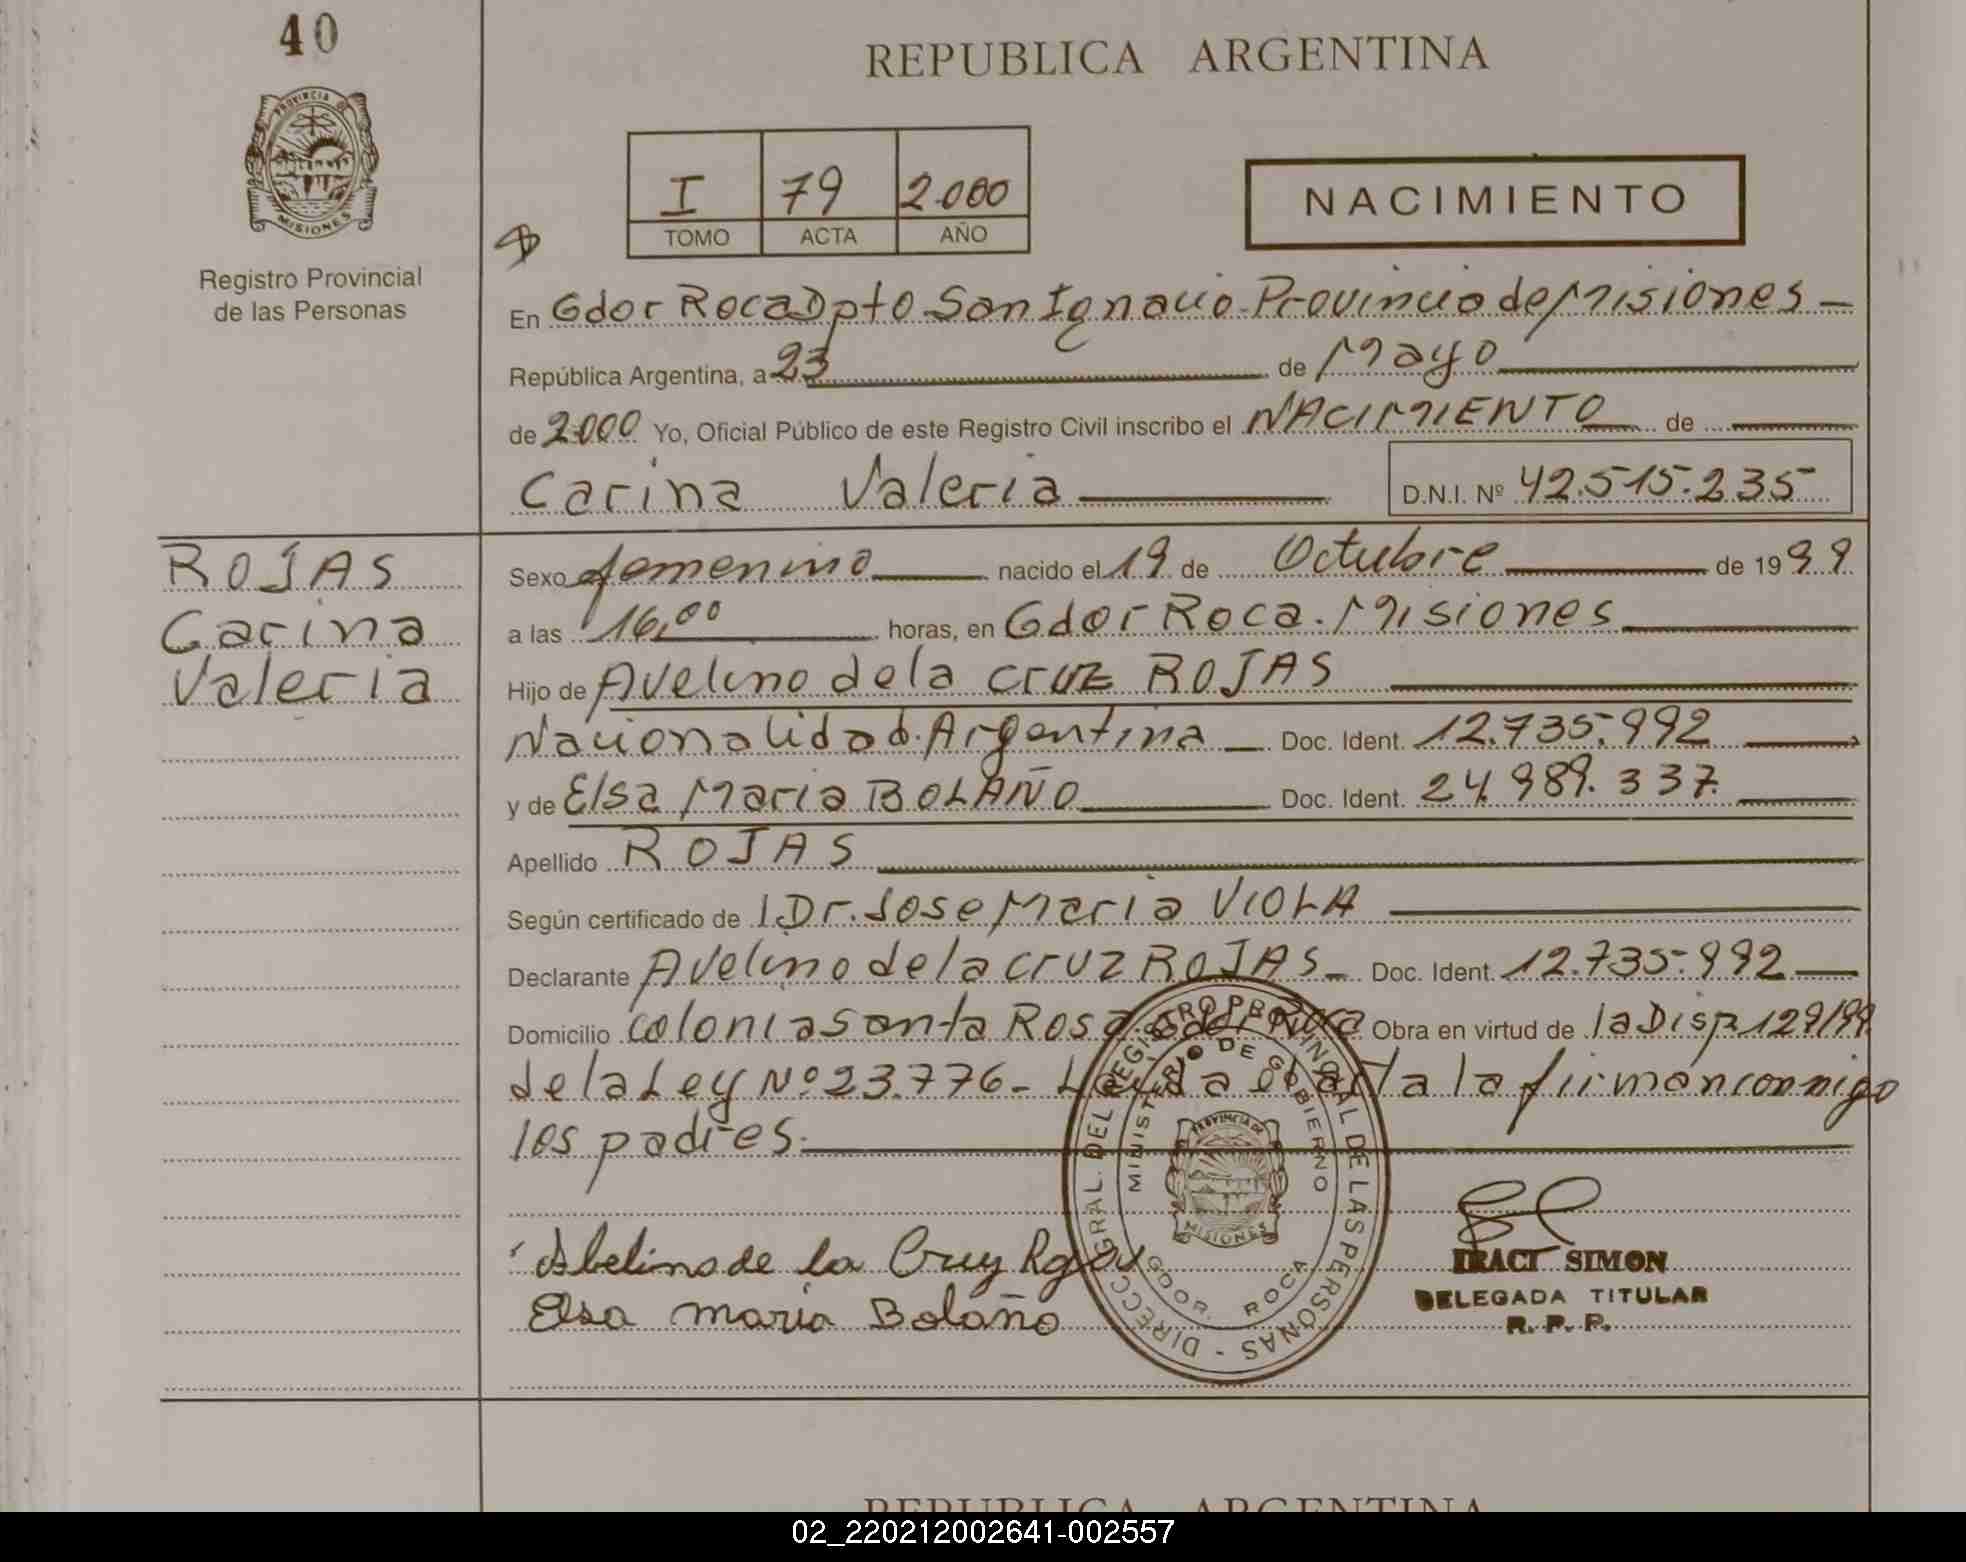 40
REPUBLICA ARGENTINA
PROVINCIA DE
MISIONES
I 79 2.000
TOMO ACTA AÑO
NACIMIENTO
Registro Provincial
de las Personas
En Gdor Roca Dpto San Ignacio Provincia de Misiones
República Argentina, a 23 de Mayo
de 2.000 Yo, Oficial Público de este Registro Civil inscribo el NACIMIENTO de
Carina Valeria D.N.I. Nº 42.515.235
ROJAS
Carina
Valeria
Sexo femenino nacido el 19 de Octubre de 1999
a las 16,00 horas, en Gdor Roca. Misiones
Hijo de Avelino de la Cruz ROJAS
Nacionalidad. Argentina Doc. Ident. 12.735.992
y de Elsa Maria BOLAÑO Doc. Ident. 24.989.337.
Apellido ROJAS
Según certificado de Dr. Jose Maria VIOLA
Declarante Avelino de la Cruz ROJAS Doc. Ident. 12.735.992
Domicilio colonia Santa Rosa. Gdor Roca Obra en virtud de la Disp. 129/99
de la Ley Nº 23.776- Leida el acta la firman conmigo
los padres.
Abelino de la Cruz Rojas
Elsa maria Bolaño
DIRECC. GRAL. DEL REGISTRO PROVINCIAL DE LAS PERSONAS -
MINISTERIO DE GOBIERNO
PROVINCIA DE
MISIONES
GDOR. ROCA
IRACI SIMON
DELEGADA TITULAR
R. P. P.
REPUBLICA ARGENTINA
02_220212002641-002557